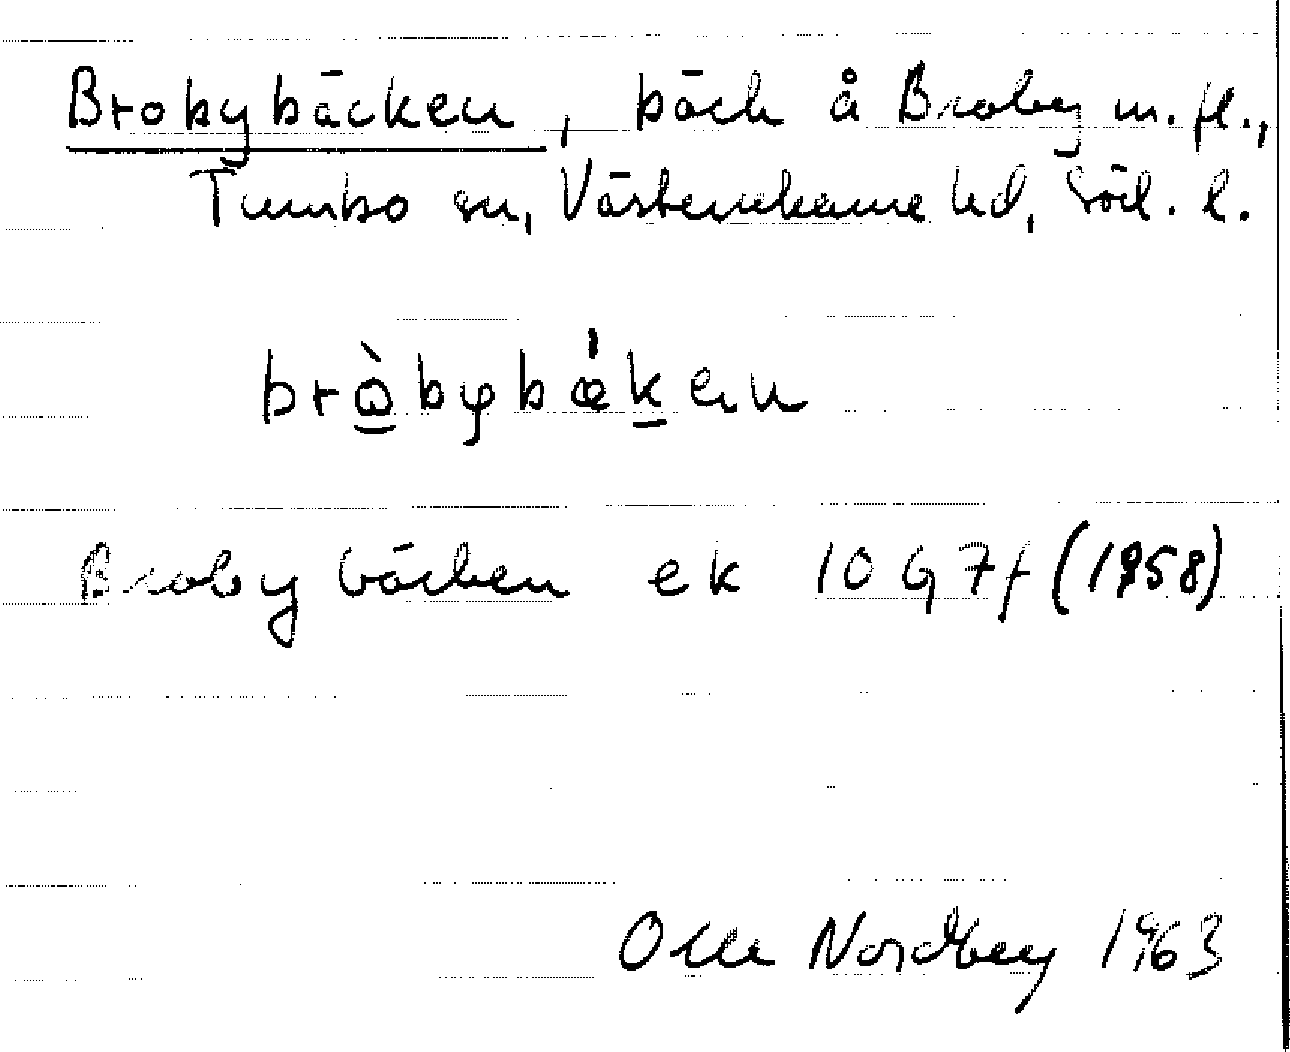 Brobybäcken, bäck å Broby m. fl.,
Tumbo sn, Västerrekarne hd, Söd. l.
brò̲bybǽk̲en
Brobybäcken ek 10G7f (1958)
Olle Nordberg 1963